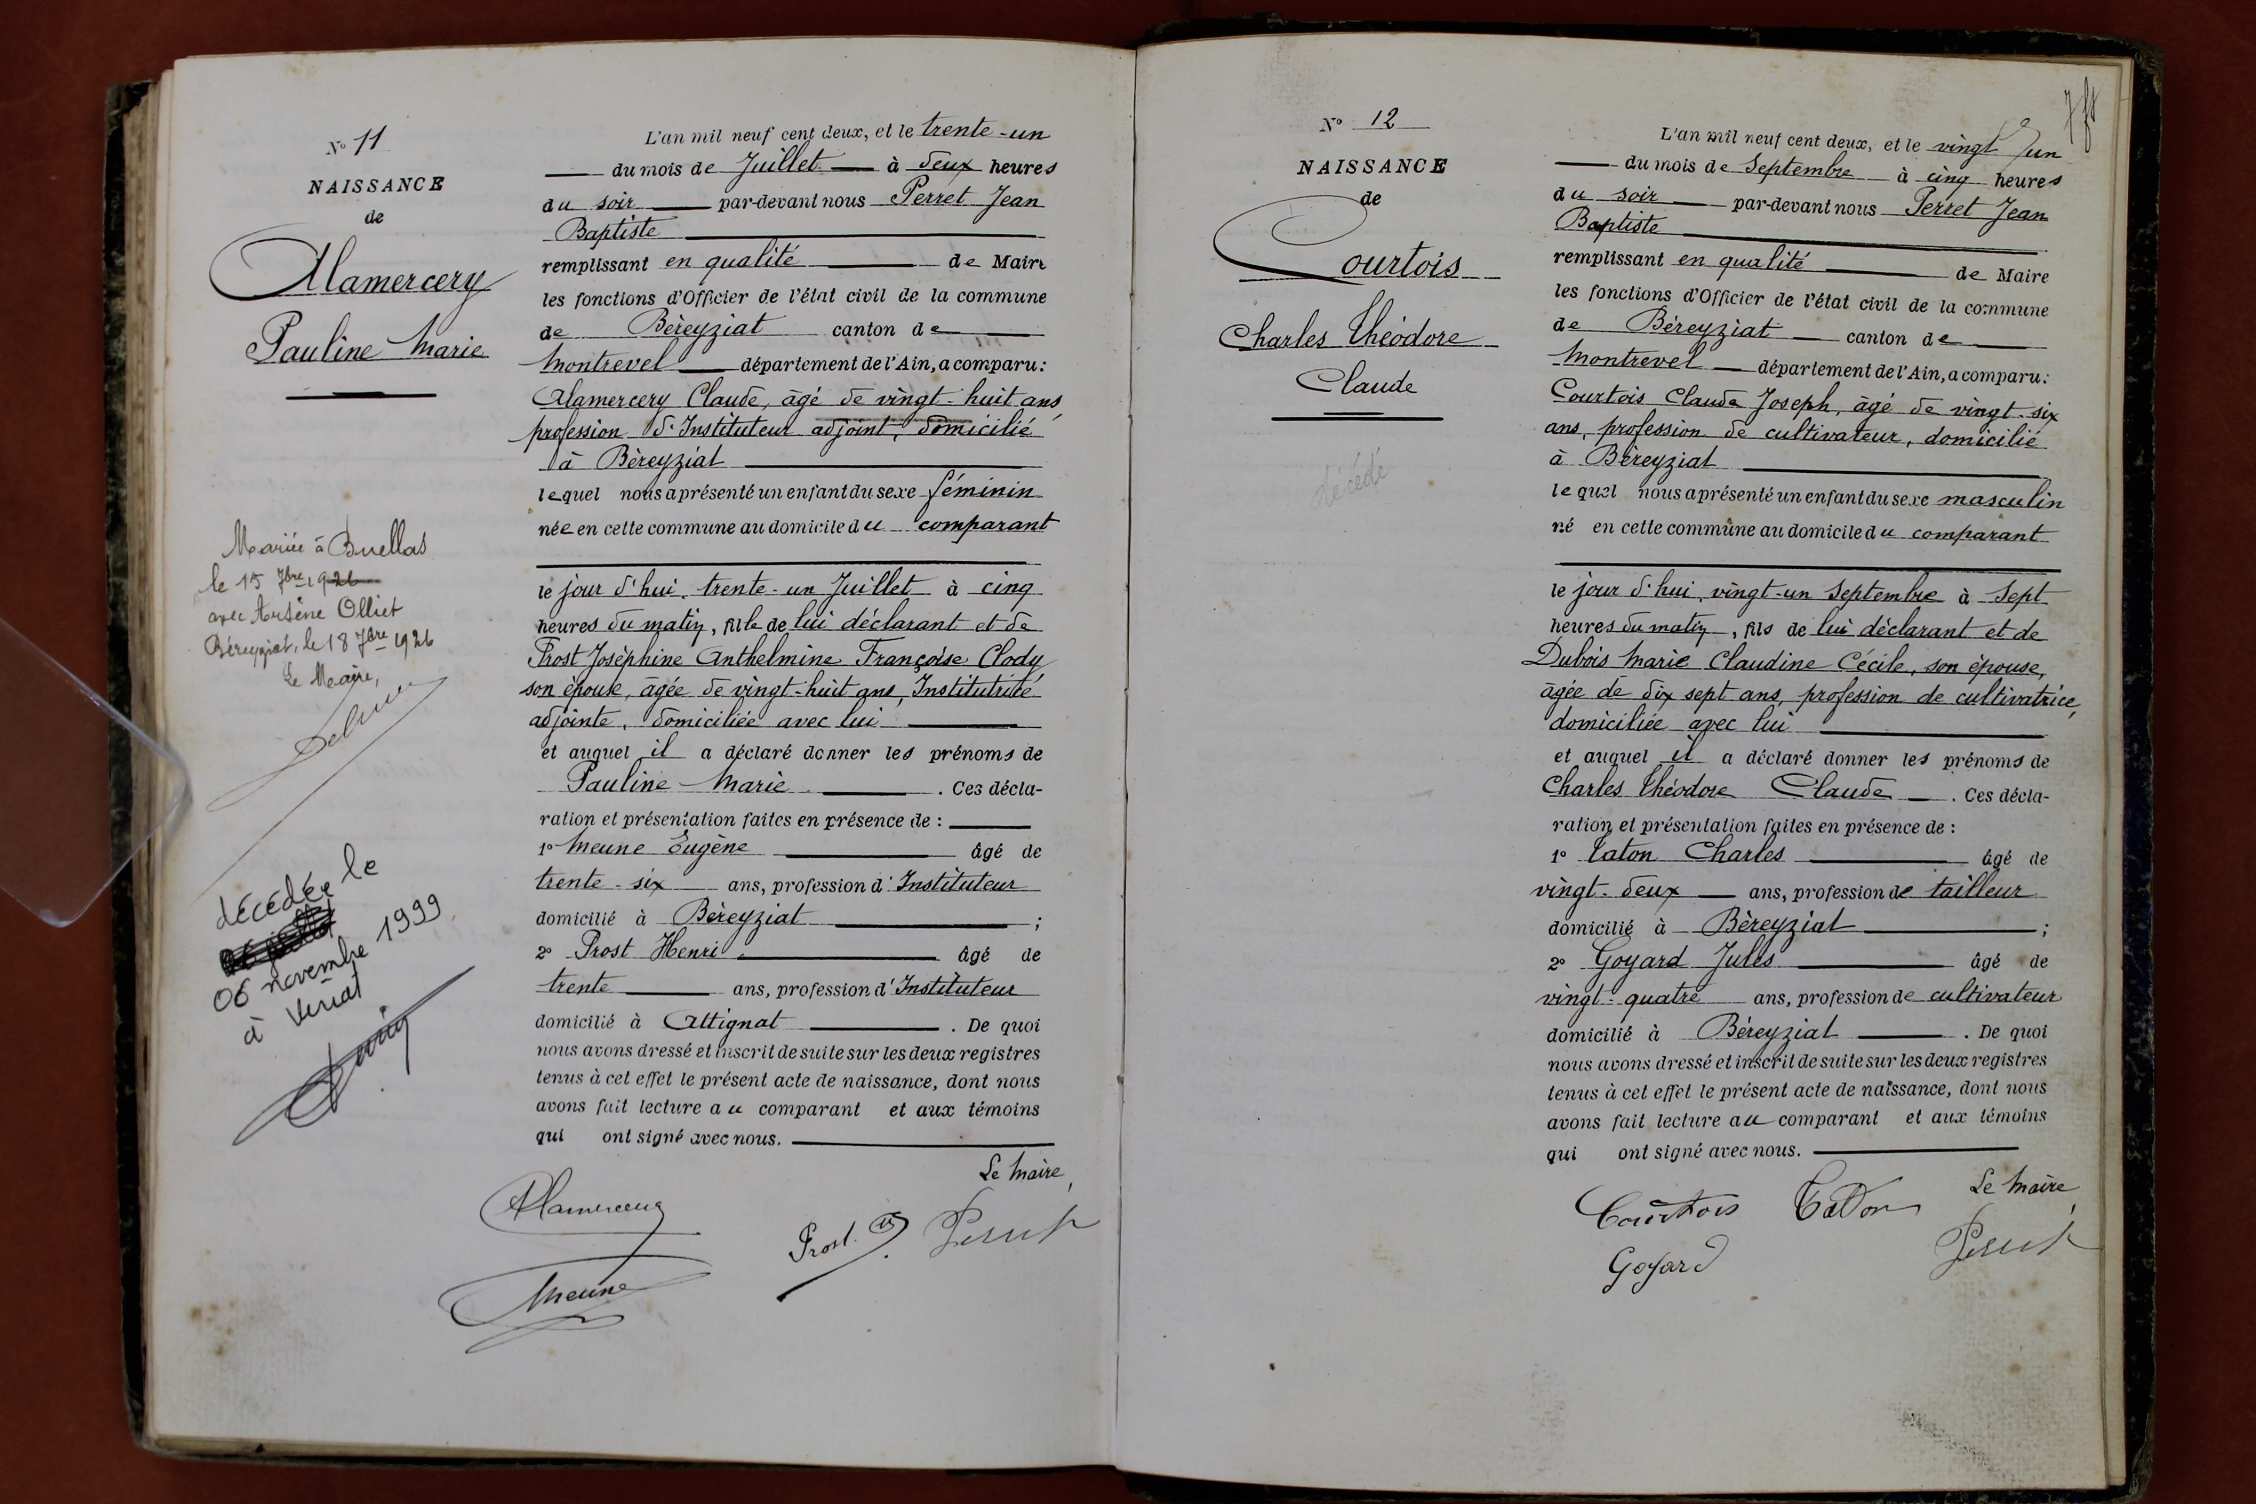 No 11
NAISSANCE
de
Alamercery
Pauline Marie
Mariée à Buellas
le 15 7bre 1926
avec Arsène Olliet
Béreyziat, le 18 7bre 1926
Le Maire,
décédée le
06 novembre 1999
à Viriat
L'an mil neuf cent deux, et le trente-un
du mois de Juillet à deux heures
du soir par-devant nous Perret Jean
Baptiste
remplissant en qualité de Maire
les fonctions d'Officier de l'état civil de la commune
de Béreyziat canton de
Montrevel département de l'Ain, a comparu:
Alamercery Claude, âgé de vingt-huit ans,
profession d'Instituteur adjoint, domicilié
à Béreyziat
lequel nous a présenté un enfant du sexe féminin
née en cette commune au domicile du comparant
le jour d'hui, trente-un Juillet à cinq
heures du matin, fille de lui déclarant et de
Prost Joséphine Anthelmine Françoise Clody
son épouse, âgée de vingt-huit ans, Institutrice
adjointe, domiciliée avec lui
et auquel il a déclaré donner les prénoms de
Pauline Marie. Ces décla-
ration et présentation faites en présence de :
1o Meune Eugène âgé de
trente-six ans, profession d'Instituteur
domicilié à Béreyziat ;
2o Prost Henri âgé de
trente ans, profession d'Instituteur
domicilié à Attignat. De quoi
nous avons dressé et inscrit de suite sur les deux registres
tenus à cet effet le présent acte de naissance, dont nous
avons fait lecture au comparant et aux témoins
qui ont signé avec nous.
Le Maire,
Alamercery
Prost. Perret
Meune
7
No 12
NAISSANCE
de
Courtois
Charles Théodore
Claude
décédé
L'an mil neuf cent deux, et le vingt un
du mois de Septembre à cinq heures
du soir par-devant nous Perret Jean
Baptiste
remplissant en qualité de Maire
les fonctions d'Officier de l'état civil de la commune
de Béreyziat canton de
Montrevel département de l'Ain, a comparu:
Courtois Claude Joseph, âgé de vingt-six
ans, profession de cultivateur, domicilié
à Béreyziat
lequel nous a présenté un enfant du sexe masculin
né en cette commune au domicile du comparant
le jour d'hui, vingt-un Septembre à Sept
heures du matin, fils de lui déclarant et de
Dubois Marie Claudine Cécile, son épouse,
âgée de dix sept ans, profession de cultivatrice,
domiciliée avec lui
et auquel il a déclaré donner les prénoms de
Charles Théodore Claude. Ces décla-
ration et présentation faites en présence de :
1o Taton Charles âgé de
vingt-deux ans, profession de tailleur
domicilié à Béreyziat ;
2o Goyard Jules âgé de
vingt-quatre ans, profession de cultivateur
domicilié à Béreyziat. De quoi
nous avons dressé et inscrit de suite sur les deux registres
tenus à cet effet le présent acte de naissance, dont nous
avons fait lecture au comparant et aux témoins
qui ont signé avec nous.
Le Maire,
Courtois Taton
Perret
Goyard